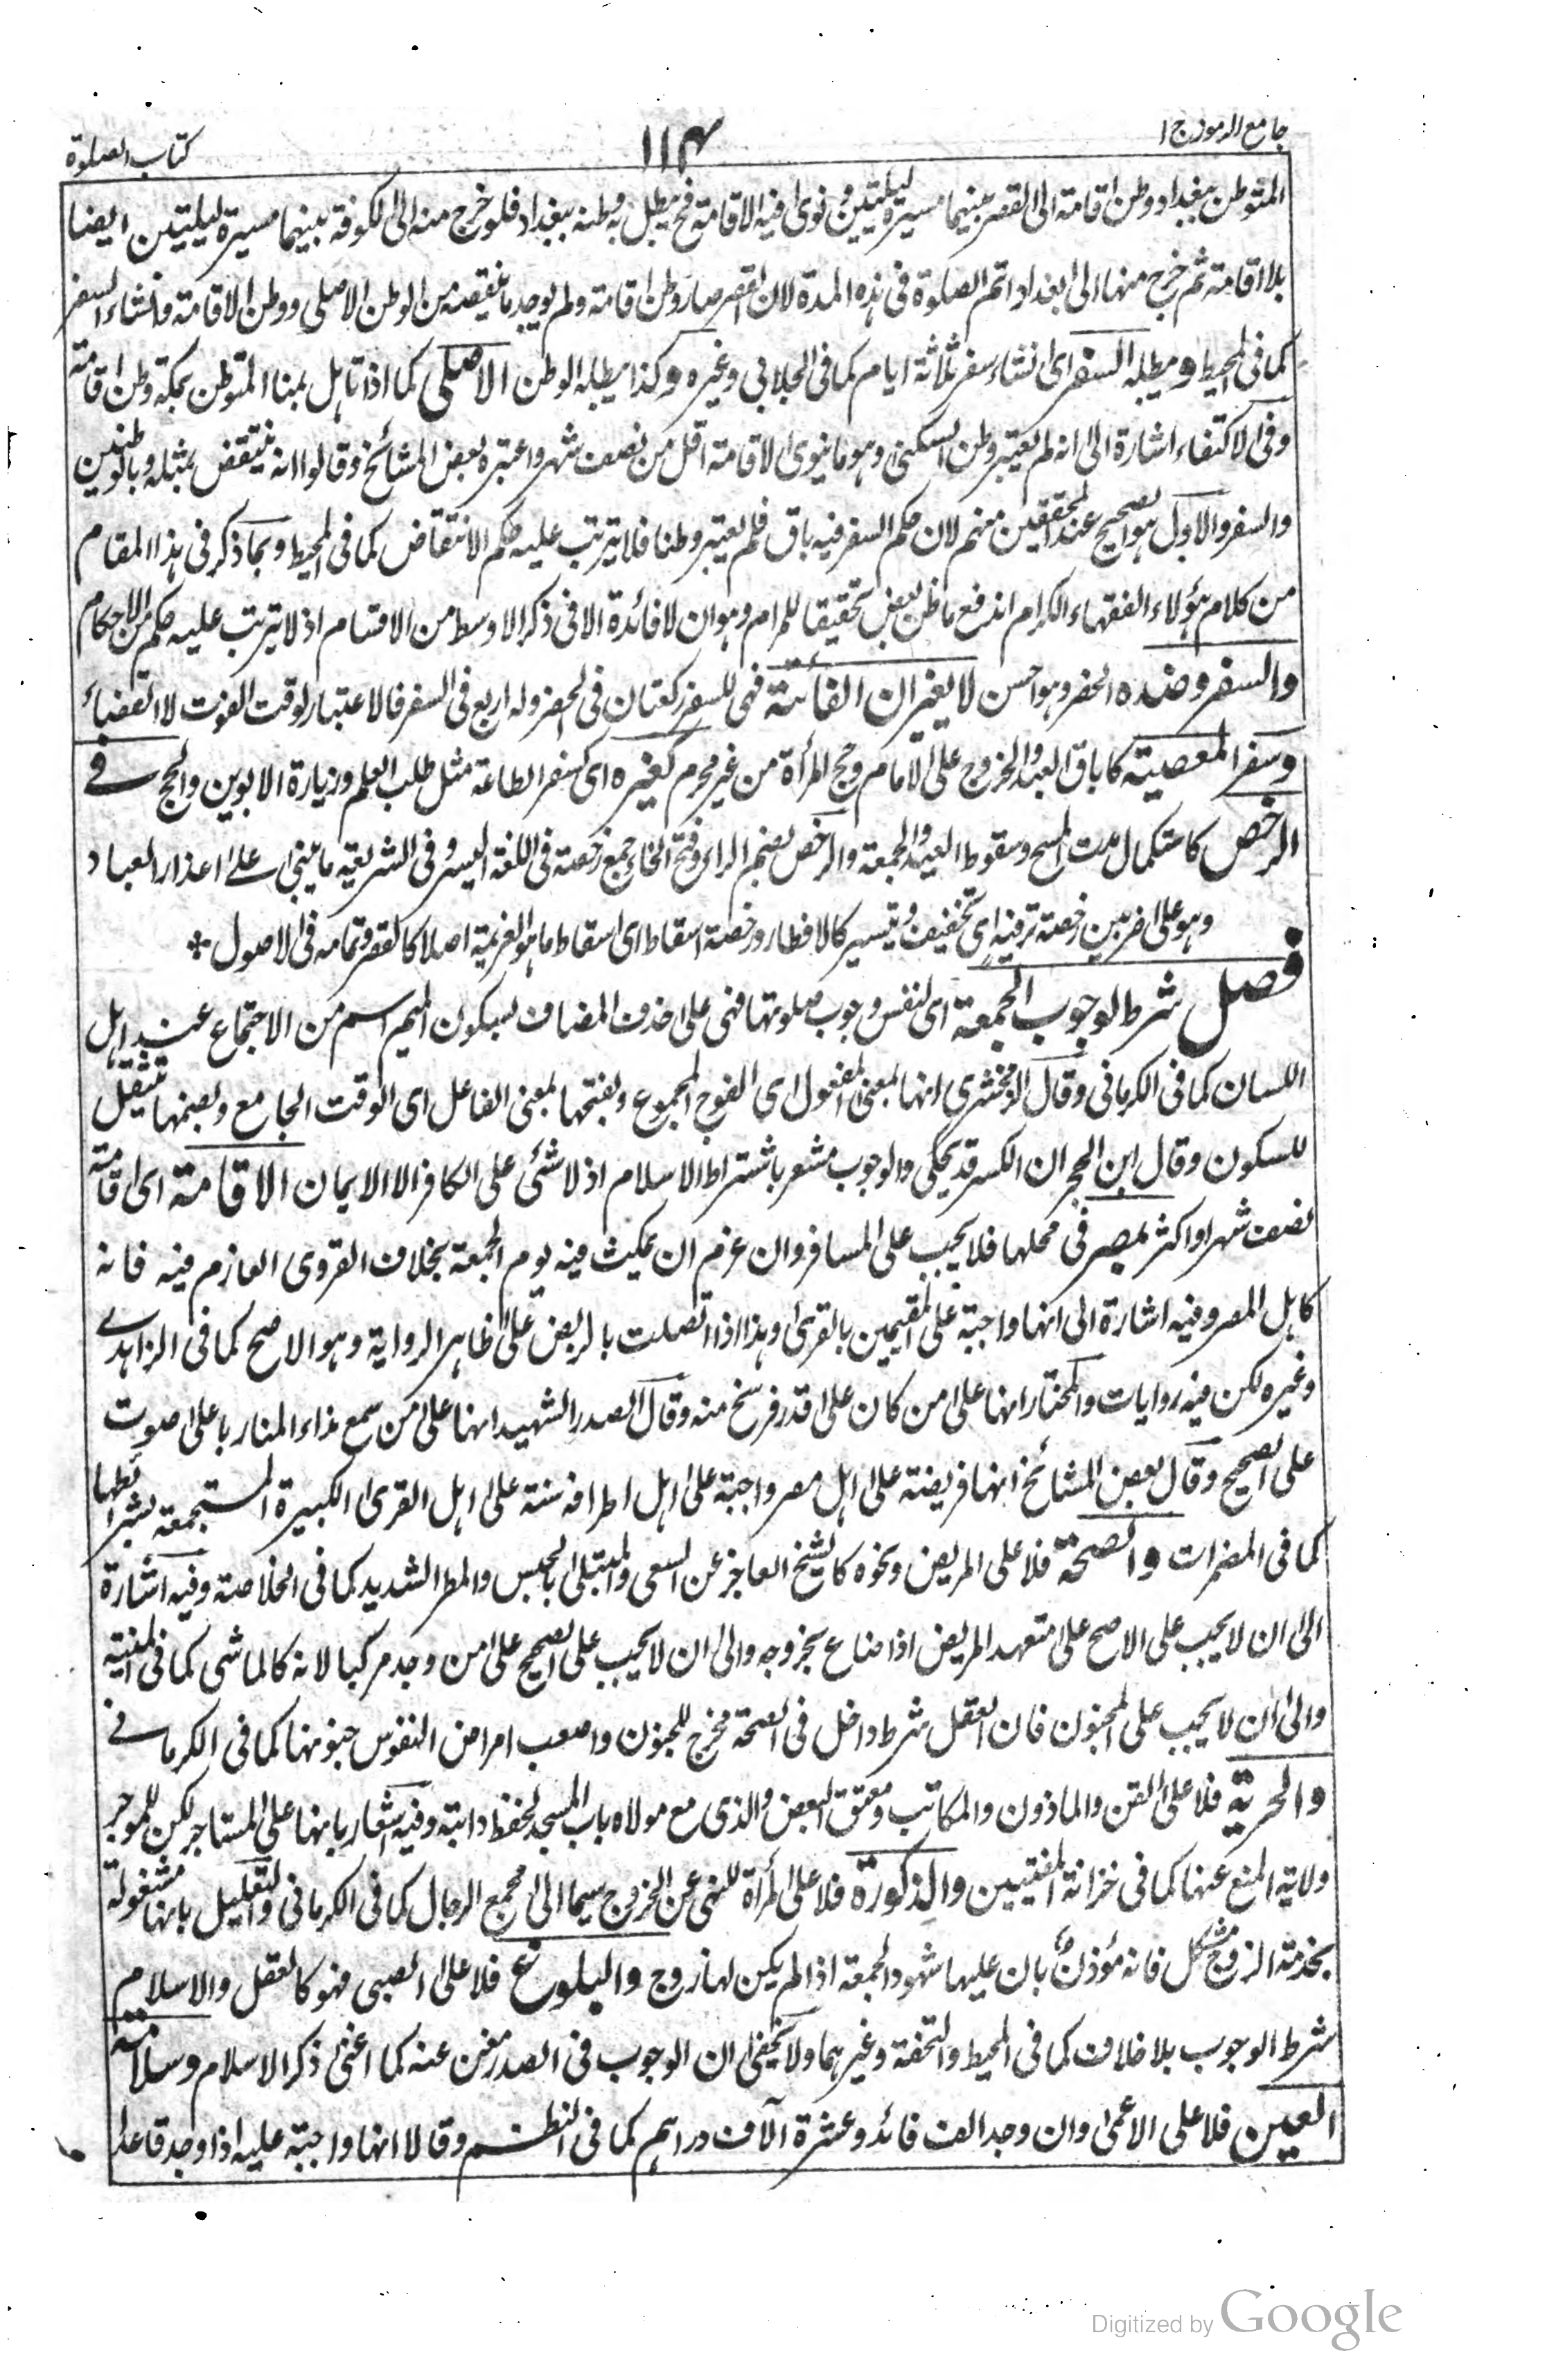 جامع الرموز ج ا
۱۱۴
كتاب الصلوة
المتوطن ببغداد ووطن اقامته الى القصر بينهما مسيرة ليلتين ونوى فيه الاقامة فح يبطل به وطنه ببغداد فلو خرج منه الى الكوفة بينهما مسيرة ليليتين ايضا
بلا اقامة ثم خرج منها الى بغداد اتم الصلوة فى هذه المدة لان القصر صار وطن اقامة ولم يوجد ما ينقضه من الوطن الاصلى ووطن الاقامة وانشاء السفر
كما فى المحيط ويبطله السفر اى انشاء سفر ثلاثة ايام كما فى الجلابى وغيره وكذا يبطله الوطن الاصلى كما اذا تاهل بمنا المتوطن بمكة وطن اقامة
وفى الاكتفاء اشارة الى انه لم يعتبر وطن السكنى وهو ما ينوى الاقامة اقل من نصف شهر واعتبره بعض المشائخ وقالوا انه ينتقض بمثله وبالوطنين
والسفر والاول هو الصحيح عند المحققين منهم لان حكم السفر فيه باق فلم يعتبر وطنا فلا يترتب عليه حكم الانتقاض كما فى المحيط وبما ذكر فى هذا المقام
من كلام هؤلاء الفقهاء الكرام اندفع ما ظن بعض تحقيقا للمرام وهو ان لا فائدة الا فى ذكر الاوسط من الاقسام اذ لا يترتب عليه حكم من الاحكام
والسفر وضده الحضر وهو احسن لا يغيران الفائتة فهى للسفر ركعتان فى الحضر وله اربع فى السفر فالاعتبار لوقت الفوت لا القضاء
وسفر المعصية كاباق العبد والخروج على الامام وحج المرأة من غير محرم كغيره اى كسفر الطاعة مثل طلب العلم وزيارة الابوين والحج فے
الرخص كاستكمال مدت المسح وسقوط العيد والجمعة والرخص بضم الراء وفتح الخاء جمع رخصة فى اللغة اليسر وفى الشريعة ما ينبى على اعذار العباد
وهو على ضربين رخصة ترفيه اى تخفيف وتيسير كالافطار ورخصة اسقاط اى اسقاط ما هو العزيمة اصلا كالقصر وتمامه فى الاصول *
فصل شرط لوجوب الجمعة اى لنفس وجوب صلوتها فهى على حذف المضاف بسكون الميم اسم من الاجتماع عند اهل
اللسان كما فى الكرمانى وقال الزمخشرى انها بمعنى المفعول اى الفوج المجموع وبفتحها بمعنى الفاعل اى الوقت الجامع وبضمها تثقيل
للسكون وقال ابن الحجر ان الكسر قد يحكى والوجوب مشعر باشتراط الاسلام اذ لا شئ على الكافر الا الايمان الاقامة اى اقامة
نصف شهر او اكثر بمصر فى محلها فلا يجب على المسافر وان عزم ان يمكث فيه يوم الجمعة بخلاف القروى العازم فيه فانه
كاهل المصر وفيه اشارة الى انها واجبة على المقيمين بالقرى وهذا اذا اتصلت بالربض على ظاهر الرواية وهو الاصح كما فى الزاهدے
وغيره لكن فيه روايات والمختار انها على من كان على قدر فرسخ منه وقال الصدر الشهيد انها على من سمع نداء المنار باعلى صوت
على الصحيح وقال بعض المشائخ انها فريضة على اهل مصر واجبة على اهل اطرافه سنة على اهل القرى الكبيرة المستجمعة بشرائطها
كما فى المضمرات والصحة فلا على المريض ونحوه كالشيخ العاجز عن السعى والمبتلى بالحبس والمطر الشديد كما فى الخلاصة وفيه اشارة
الى ان لا يجب على الاصح على متعهد المريض اذا ضاع بخروجه والى ان لا يجب على الصحيح على من وجد مركبا لانه كالماشى كما فى المنية
والى ان لا يجب على المجنون فان العقل شرط داخل فى الصحة مخرج للجنون واصعب امراض النفوس جنونها كما فى الكرمانے
والحرية فلا على القن والماذون والمكاتب ومعتق البعض والذى مع مولاه باب المسجد لحفظ دابته وفيه اشعار بانها على المستاجر لكن للموجر
ولاية المنع عنها كما فى خزانة المفتيين والذكورة فلا على المرأة للنهى عن الخروج سيما الى مجمع الرجال كما فى الكرمانى والتعليل بانها مشغولة
بخدمة الزوج مشكل فانه مؤذن بان عليها شهود الجمعة اذا لم يكن لها زوج والبلوغ فلا على الصبى فهو كالعقل والاسلام
شرط الوجوب بلا خلاف كما فى المحيط والتحفة وغيرهما ولا يخفى ان الوجوب فى الصدر مغن عنه كما اغنى ذكر الاسلام وسلامة
العين فلا على الاعمى وان وجد الف قائد وعشرة آلاف دراهم كما فى النظم وقالا انها واجبة عليه اذا وجد قاعدا
Digitized by Google